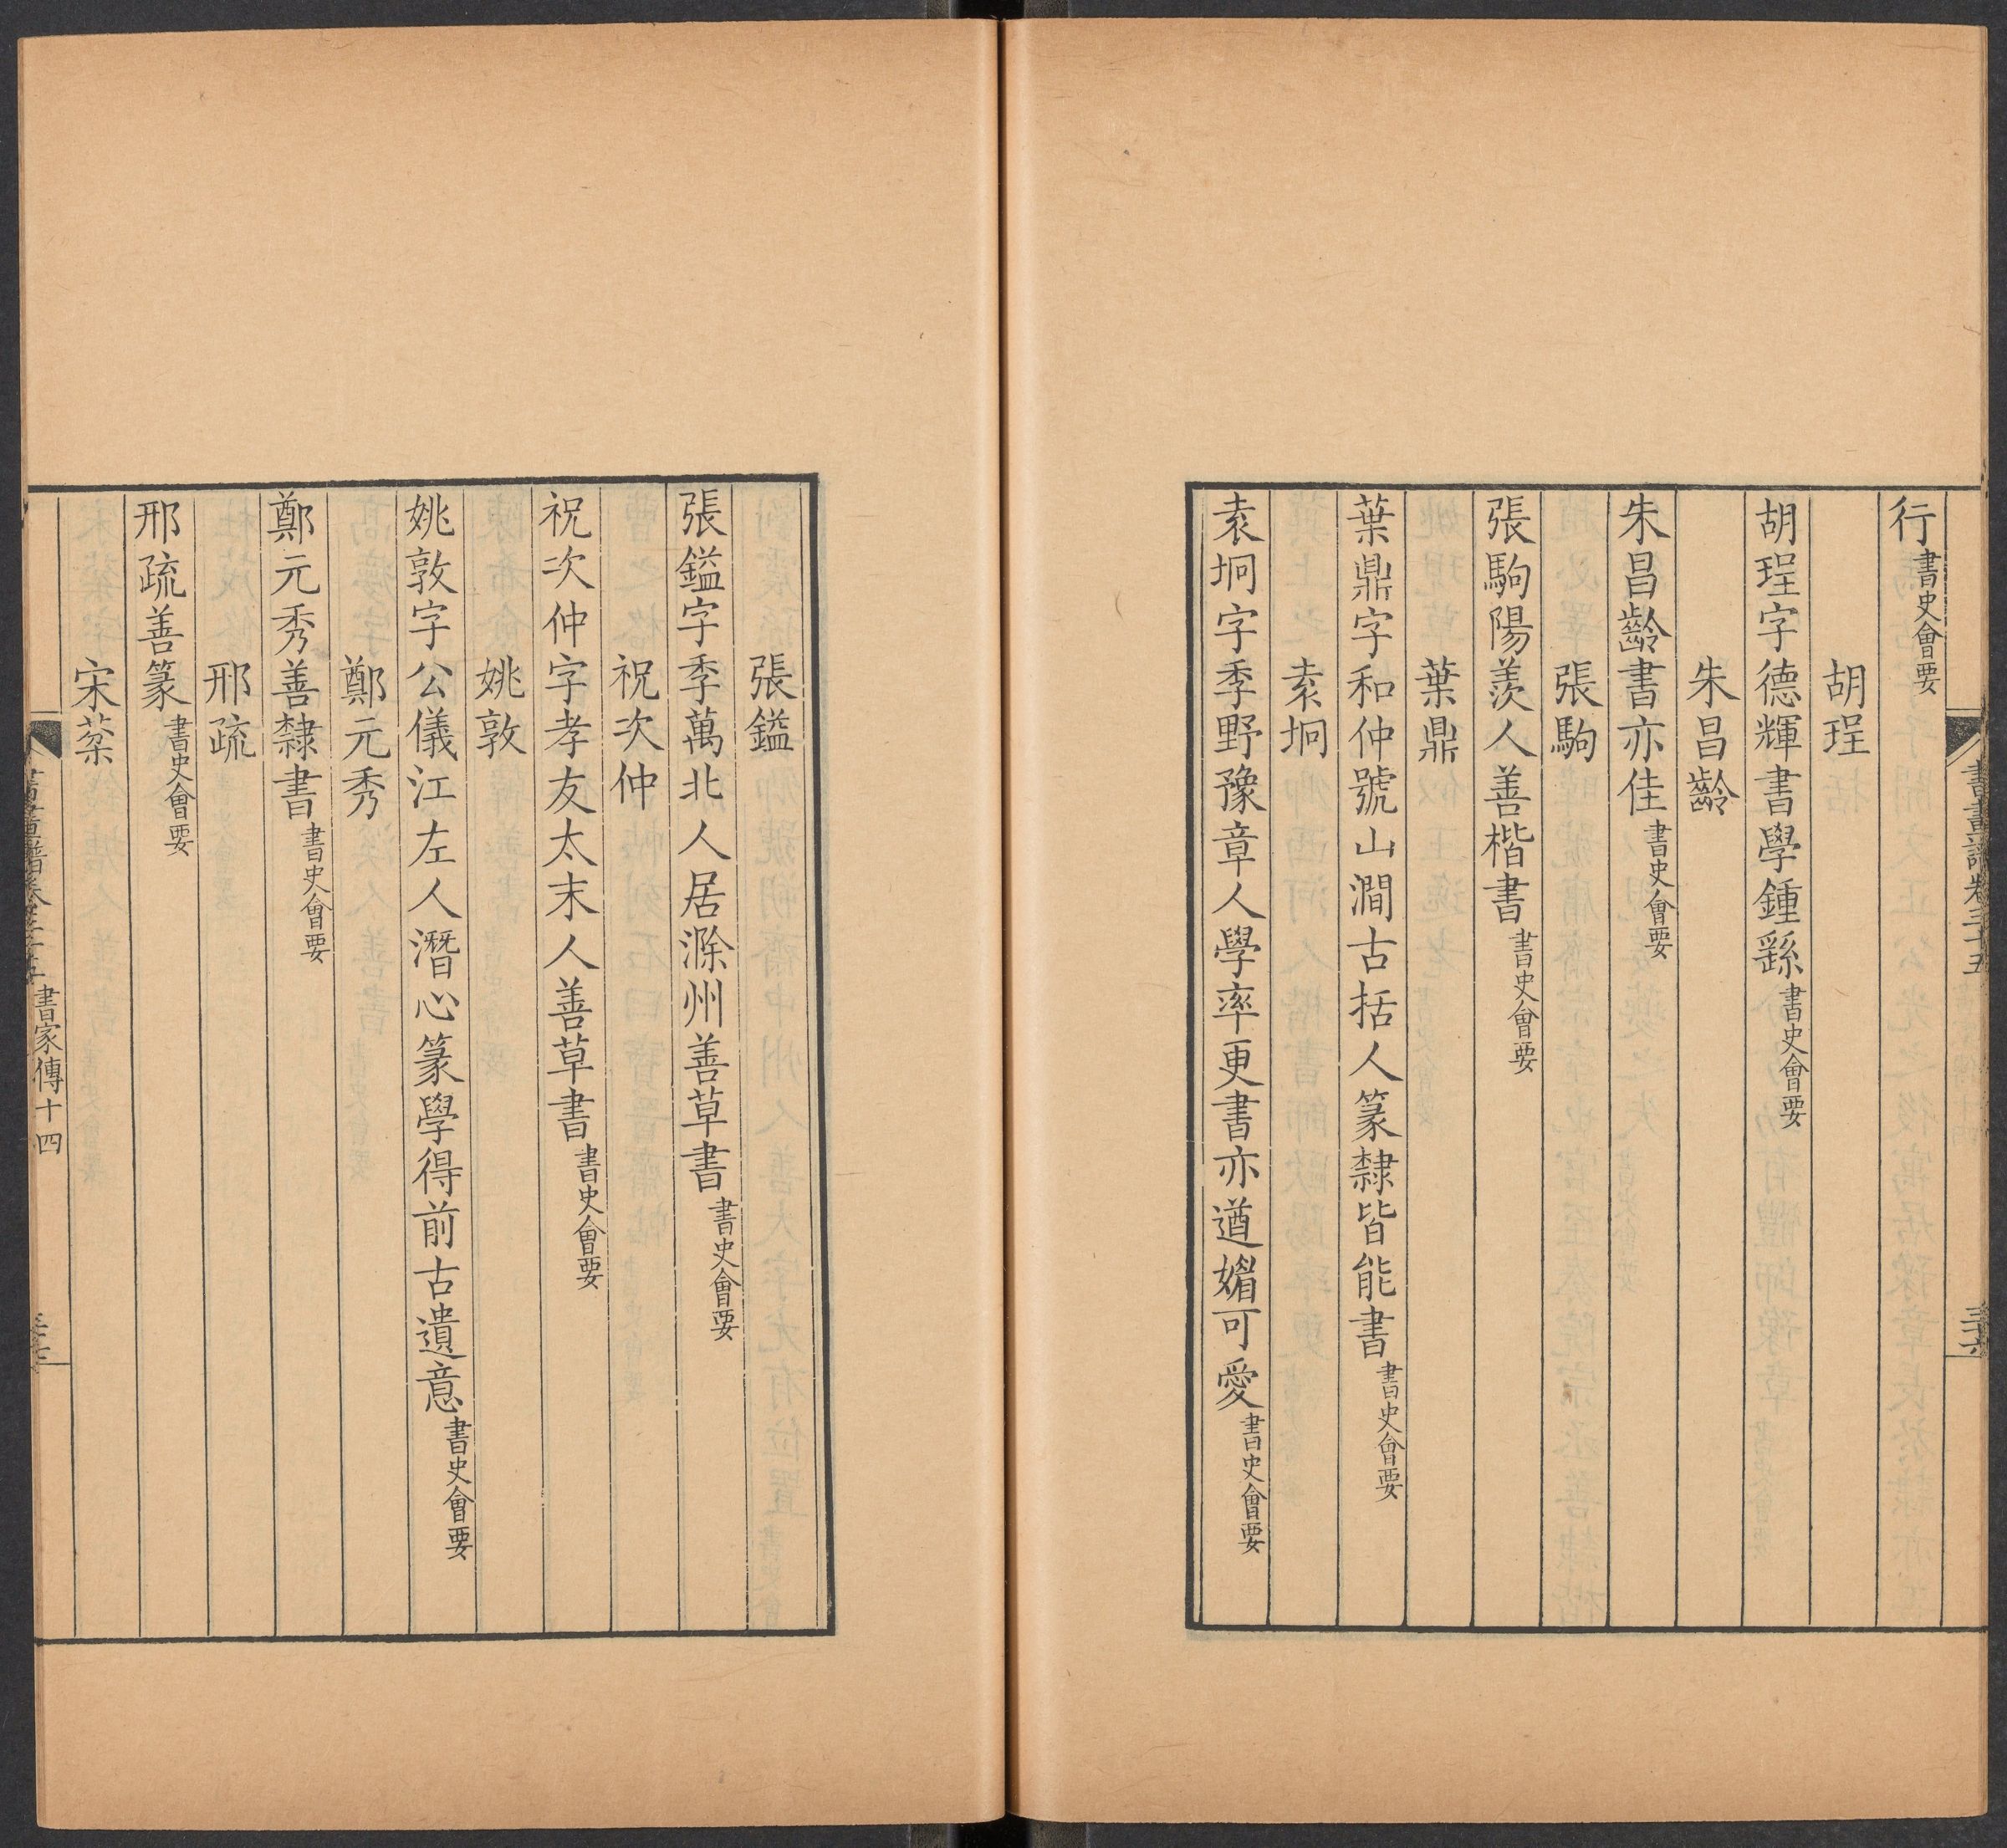 行書史會要
胡珵
胡珵字德輝書學鍾繇書史會要
朱昌齡
朱昌齡書亦佳書史會要
張駒
張駒陽羨人善楷書書史會要
葉鼎
葉鼎字和仲號山澗古括人篆隸皆能書書史會要
袁坰
袁坰字季野豫章人學率更書亦遒媚可愛書史會要
張鎰
張鎰字季萬北人居滁州善草書書史會要
祝次仲
祝次仲字孝友太末人善草書書史會要
姚敦
姚敦字公儀江左人潛心篆學得前古遺意書史會要
鄭元秀
鄭元秀善隸書書史會要
邢疏
邢疏善篆書史會要
宋
書畫譜卷三十五
三十六
書畫譜卷三十五 書家傳十四